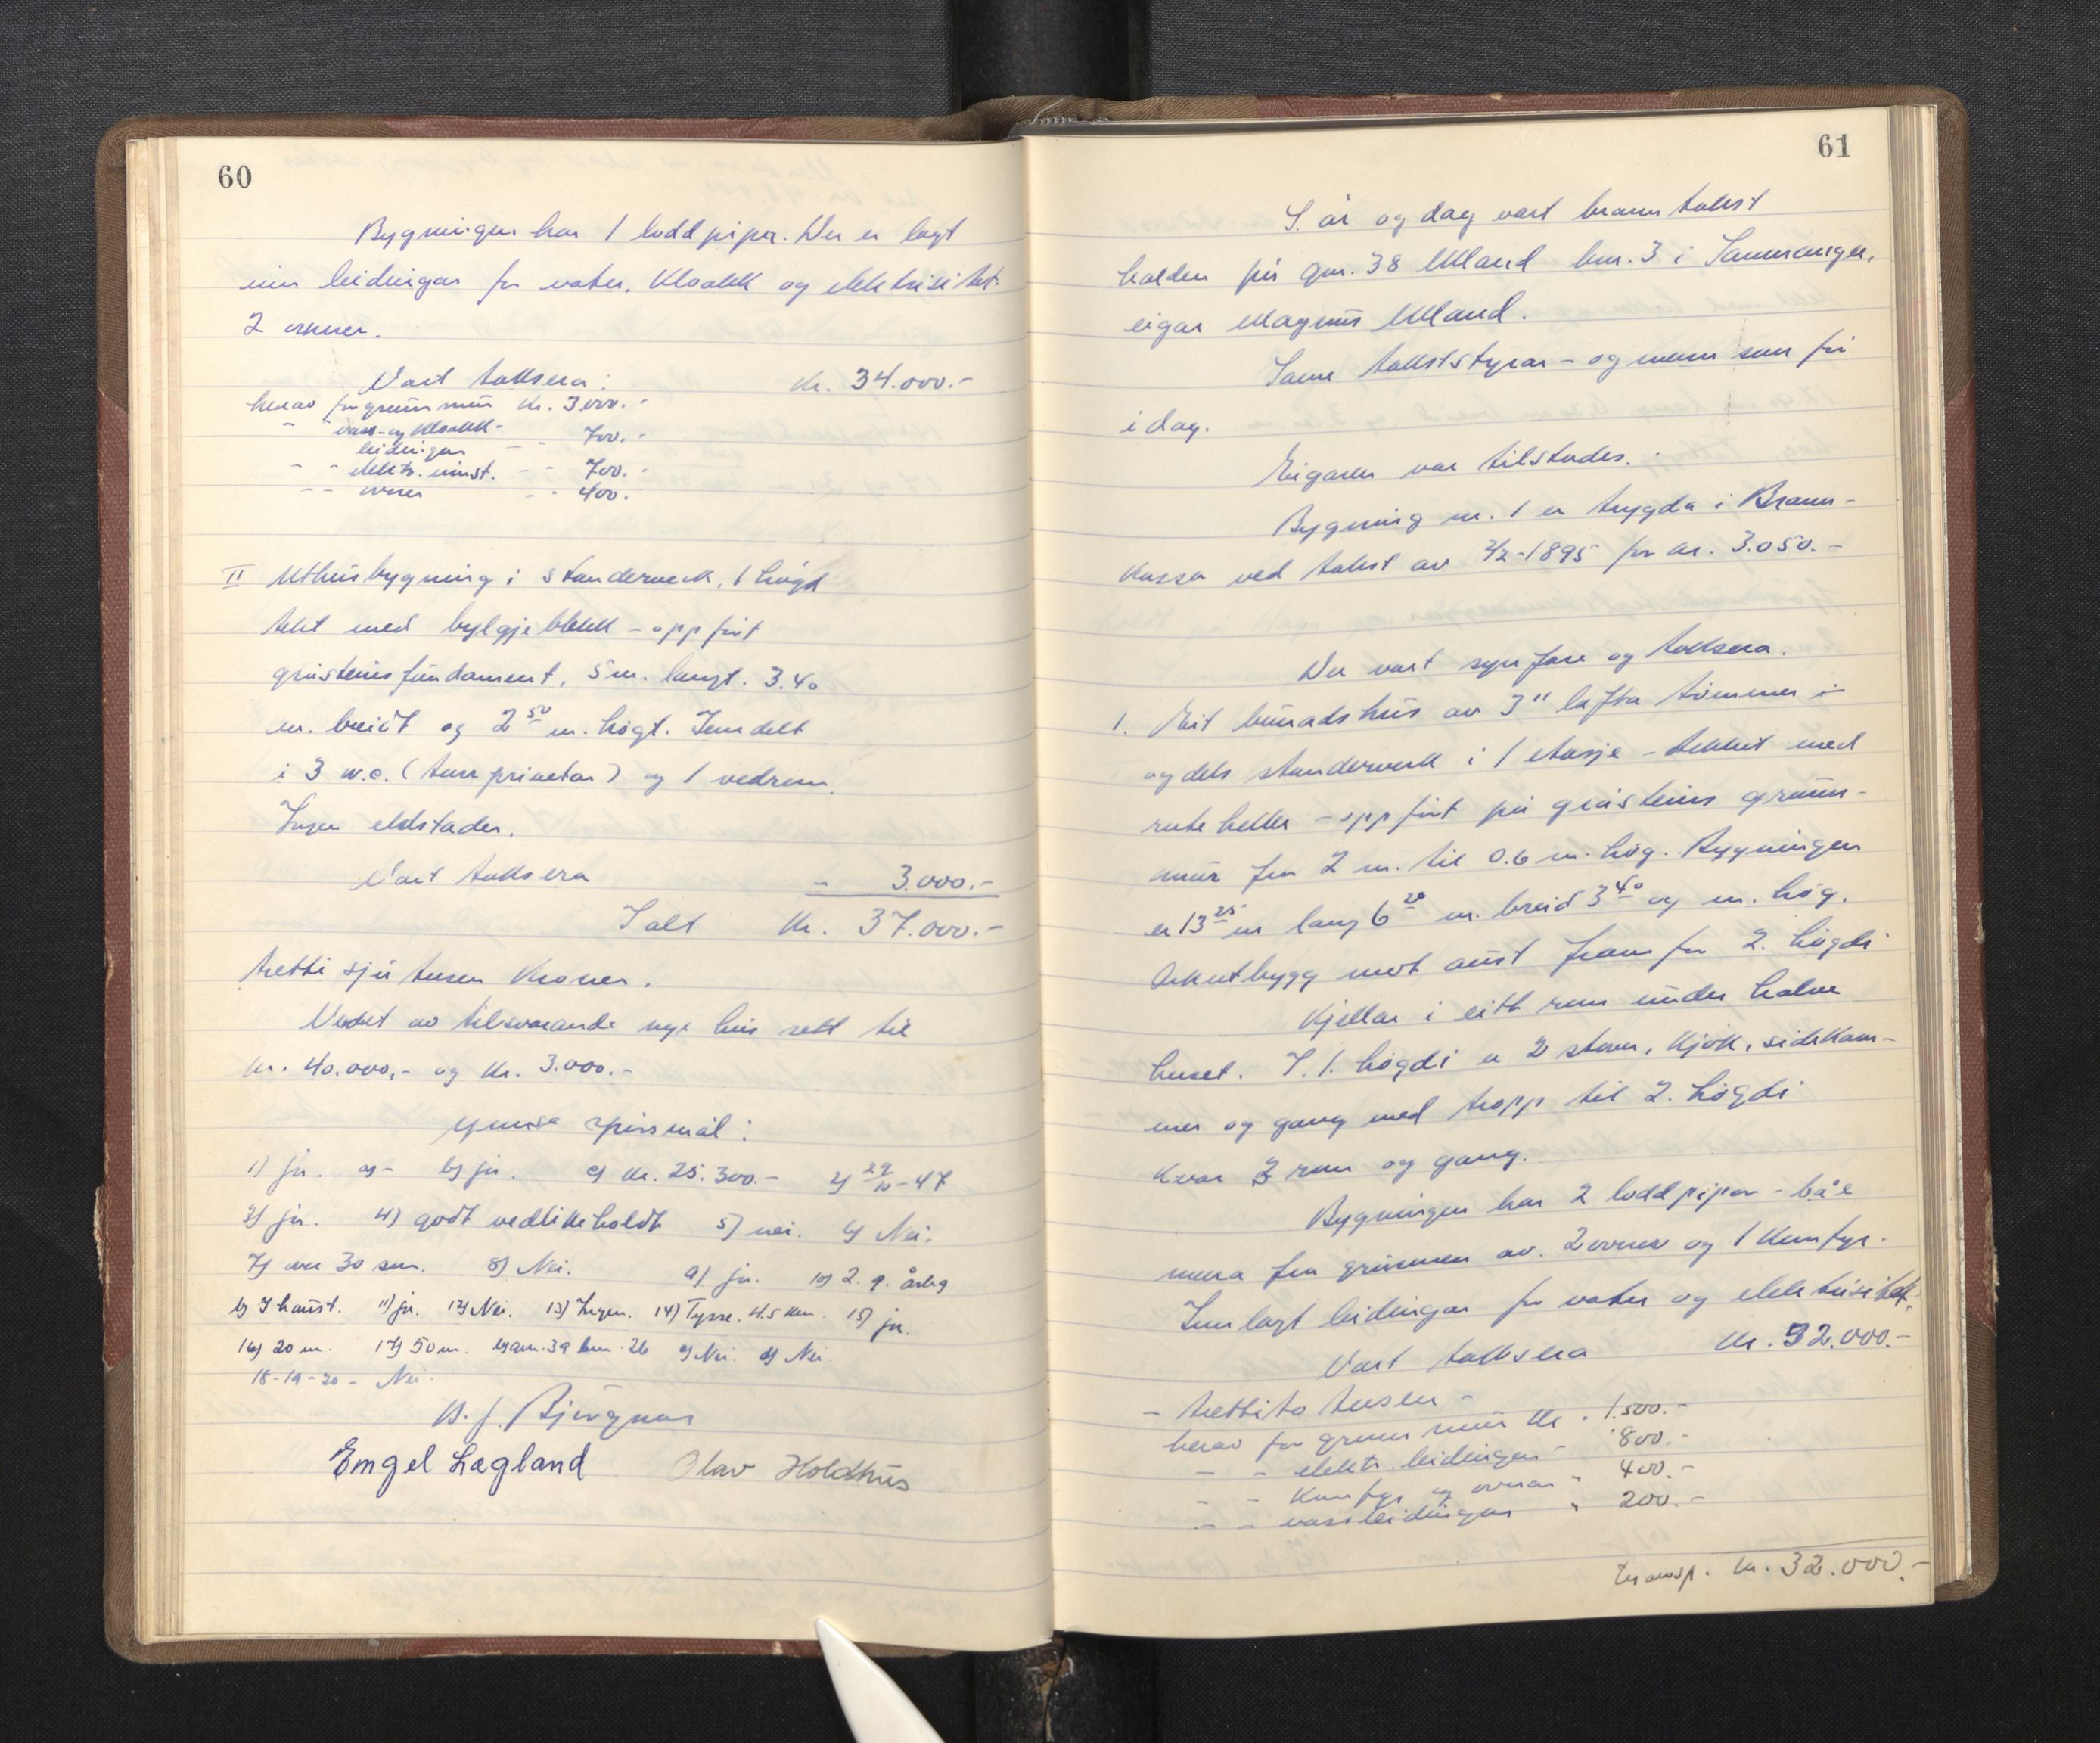 60
Bygningen har 1 loddpipa. Der er lagt
inn leidingar for vatn, kloakk og elektrisitet.
2 omnar.
Vart taksera: kr. 34.000.-
herav for grunnmur kr. 3000.-
- - vass- og kloakk-
leidingar - - 700.-
- - elektr. innst. - - 700.-
- - ovner - - 400.-
II Uthusbygning i standerverk, 1 høgd
tekt med bylgjeblekk - oppført
gråsteinsfundament, 5 m. langt. 3.40
m. breidt og 2 50 m. høgt. Inndelt
i 3 w.c. (turrprivetar) og 1 vedrom.
Ingen eldstader.
Vart taksera - 3.000.-
I alt Kr. 37.000.-
tretti sju tusen kroner.
Verdet av tilsvarande nye hus sett til
kr. 40.000,- og kr. 3.000.-
Ymse spørsmål:
1) ja. a) - b) ja. c) kr. 25.300.- 2) 29/10-47
3) ja. 4) godt vedlikeholdt 5) nei. 6) Nei.
7) over 30 m. 8) Nei. 9) ja. 10) 2. g. årleg
b) I haust. 11) ja. 12) Nei. 13) Ingen. 14) Tysse. 4.5 km. 15) ja.
16) 20 m. 17) 50 m. b) gnr. 39 bnr. 26 c) Nei. d) Nei.
18-19-20- Nei.
Engel Lægland Olav Holdhus
61
S. år og dag vart branntakst
halden på gnr. 38 Ulland bnr. 3 i Samnanger,
eigar Magnus Ulland.
Same takststyrar - og menn som fyr
i dag.
Eigaren var tilstades.
Bygning nr. 1 er trygda i Brann-
kassa ved takst av 2/2-1895 for kr. 3.050.-
Der vart synfare og taksera.
1. Eit bunadshus av 3" lafta tømmer
og dels standerverk i 1 etasje - tekket med
ruteheller - oppført på gråsteins grunn-
mur fra 2 m. til 0.6 m. høg. Bygningen
er 13 25 m lang 6 20 m. breid 3 40 og m. høg.
Arkutbygg mot aust fram for 2. høgdi
Kjellar i eitt rom under halve
huset. I 1. høgdi er 2 stover, kjøk, sidekam-
mer og gang med tropp til 2. høgdi
kvar 3 rom og gang.
Bygningen har 2 loddpipor - båe
mura fra grunnen av. 2 ovner og 1 komfyr.
Innlagt leidingar for vatn og elektrisitet.
Vart taksera kr. 32.000.-
- trettito tusen -
herav for grunnmur kr. 1.500.-
- - elektr. leidingar - 800.-
- - komfyr og ovnar " 400.-
- - vassleidingar " 200.-
transp. kr. 32.000.-